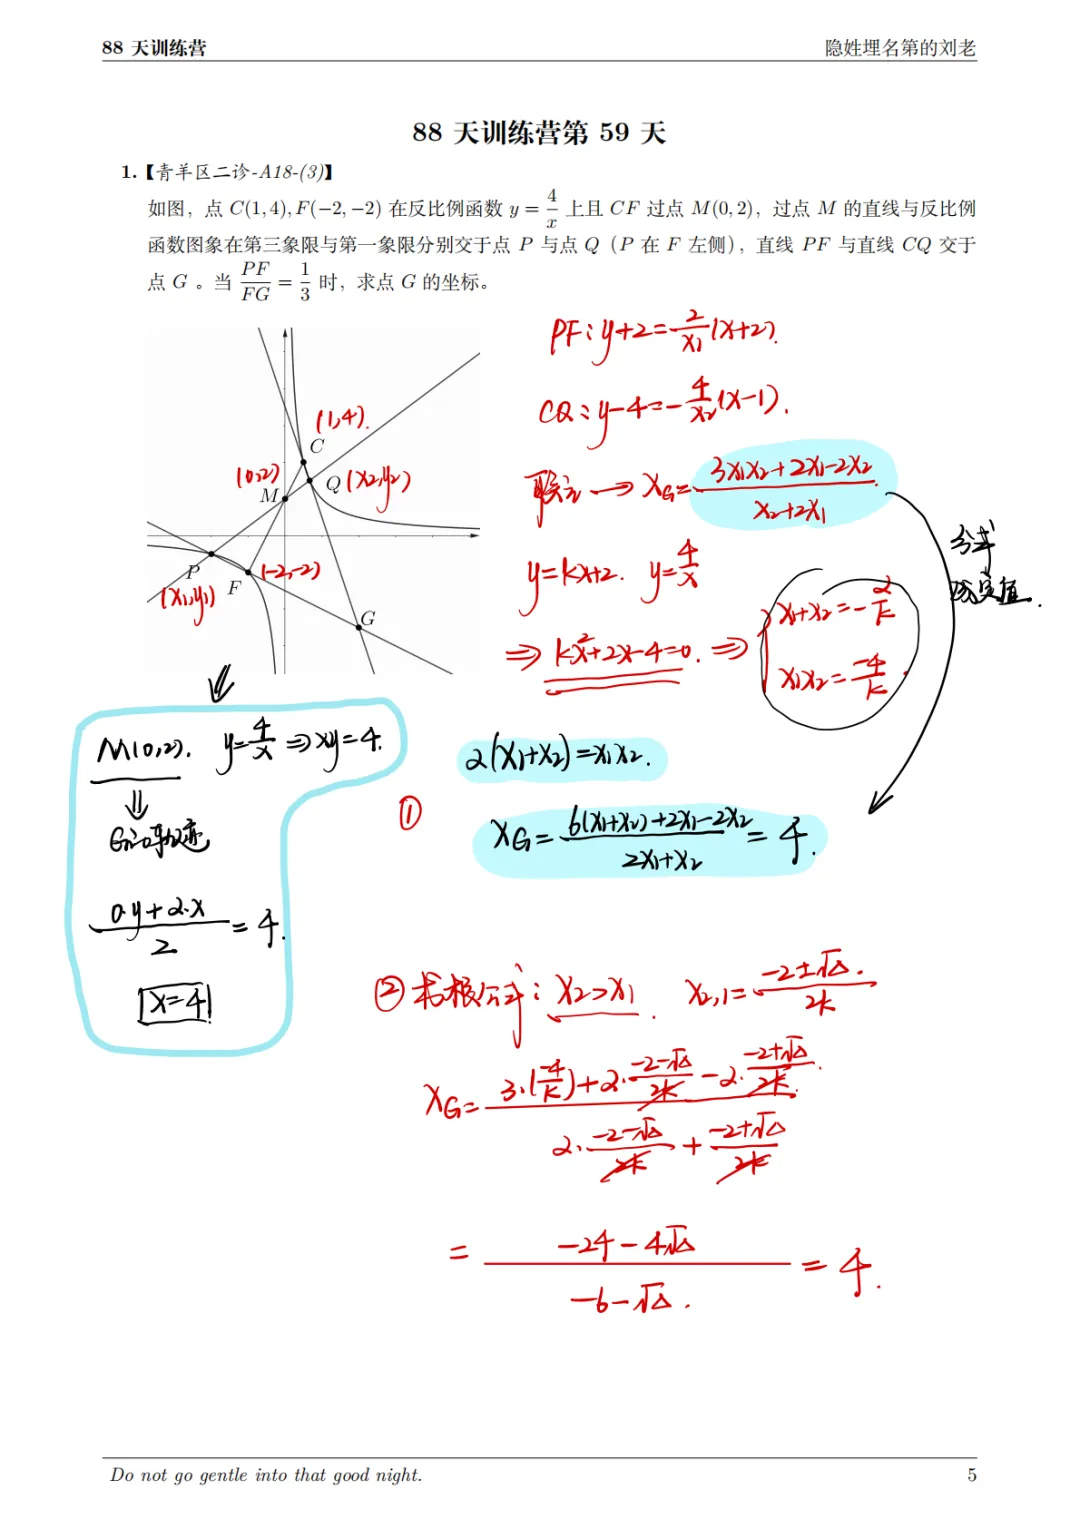 88 天训练营
隐姓埋名第的刘老
88 天训练营第 59 天
1.【青羊区二诊-A18-(3)】
如图，点 C(1,4), F(−2,−2) 在反比例函数 y = 4/x 上且 CF 过点 M(0,2)，过点 M 的直线与反比例
函数图象在第三象限与第一象限分别交于点 P 与点 Q（P 在 F 左侧），直线 PF 与直线 CQ 交于
点 G 。当 PF/FG = 1/3 时，求点 G 的坐标。
PF: y+2=2/x₁(x+2).
CQ: y-4=-4/x₂(x-1).
(1,4).
C
(0,2)
M
Q (x₂,y₂)
联立 → x_G= (3x₁x₂+2x₁-2x₂)/(x₂+2x₁)
P
F
(-2,-2)
(x₁,y₁)
G
y=kx+2. y=4/x
⇒ kx²+2x-4=0. ⇒ { x₁+x₂=-2/k
x₁x₂=-4/k
分式
定值.
M(0,2). y=4/x ⇒ xy=4.
⇓
G的轨迹
(0·y+2·x)/2 = 4.
x=4
2(x₁+x₂)=x₁x₂.
①
x_G= (6(x₁+x₂)+2x₁-2x₂)/(2x₁+x₂) = 4.
② 求根公式: x₂>x₁. x₂,₁= (-2±√Δ)/2k.
x_G= (3·(-4/k)+2·(-2-√Δ)/2k-2·(-2+√Δ)/2k)/(2·(-2-√Δ)/2k+(-2+√Δ)/2k)
= (-24-4√Δ)/(-6-√Δ) = 4.
Do not go gentle into that good night.
5